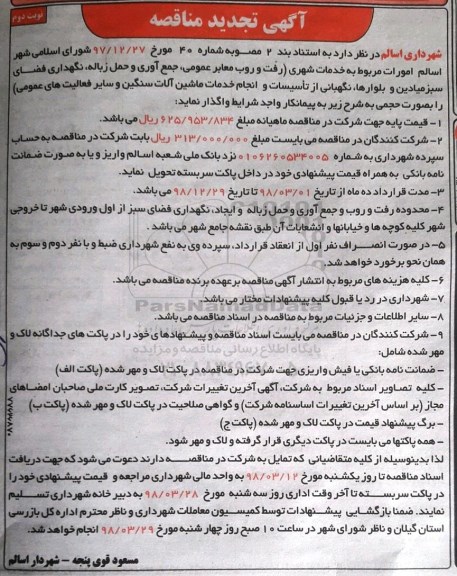 آگهی تجدید مناقصه
نوبت دوم
شهرداری اسالم در نظر دارد به استناد بند ۲ مصوبه شماره ۴۰ مورخ ۹۷/۱۲/۲۷ شورای اسلامی شهر
اسالم امورات مربوط به خدمات شهری (رفت و روب معابر عمومی، جمع آوری و حمل زباله، نگهداری فضای
سبز میادین و بلوارها، نگهبانی از تأسیسات و انجام خدمات ماشین آلات سنگین و سایر فعالیت های عمومی)
را بصورت حجمی به شرح زیر به پیمانکار واجد شرایط واگذار نماید:
۱- قیمت پایه جهت شرکت در مناقصه ماهیانه مبلغ ۶۲۵/۹۵۳/۸۳۴ ریال می باشد.
۲- شرکت کنندگان در مناقصه می بایست مبلغ ۳۱۳/۰۰۰/۰۰۰ ریال بابت شرکت در مناقصه به حساب
سپرده شهرداری به شماره ۰۱۰۶۲۶۰۵۳۴۰۰۵ نزد بانک ملی شعبه اسالم واریز و یا به صورت ضمانت
نامه بانکی به همراه قیمت پیشنهادی خود در داخل پاکت سربسته تحویل نماید.
۳- مدت قرارداد ده ماه از تاریخ ۹۸/۰۳/۰۱ تا تاریخ ۹۸/۱۲/۲۹ می باشد.
۴- محدوده رفت و روب و جمع آوری و حمل زباله و ایجاد، نگهداری فضای سبز از اول ورودی شهر تا خروجی
شهر کلیه کوچه ها و خیابانها و انشعابات آن طبق نقشه جامع شهر می باشد.
۵- در صورت انصراف نفر اول از انعقاد قرارداد، سپرده وی به نفع شهرداری ضبط و با نفر دوم و سوم به
همان نحو برخورد خواهد شد.
۶- کلیه هزینه های مربوط به انتشار آگهی مناقصه بر عهده برنده مناقصه می باشد.
۷- شهرداری در رد یا قبول کلیه پیشنهادات مختار می باشد.
۸- سایر اطلاعات و جزئیات مربوط به مناقصه در اسناد مناقصه می باشد.
۹- شرکت کنندگان در مناقصه می بایست اسناد مناقصه و پیشنهادهای خود را در پاکت های جداگانه لاک و
مهر شده شامل:
- ضمانت نامه بانکی یا فیش واریزی جهت شرکت در مناقصه در پاکت لاک و مهر شده (پاکت الف)
- کلیه تصاویر اسناد مربوط به شرکت، آگهی آخرین تغییرات شرکت، تصویر کارت ملی صاحبان امضاهای
مجاز (بر اساس آخرین تغییرات اساسنامه شرکت) و گواهی صلاحیت در پاکت لاک و مهر شده (پاکت ب)
- برگ پیشنهاد قیمت در پاکت لاک و مهر شده (پاکت ج)
- همه پاکتها می بایست در پاکت دیگری قرار گرفته و لاک و مهر شود.
لذا بدینوسیله از کلیه متقاضیانی که تمایل به شرکت در مناقصه دارند دعوت می شود که جهت دریافت
اسناد مناقصه تا روز یکشنبه مورخ ۹۸/۰۳/۱۲ به واحد مالی شهرداری مراجعه و قیمت پیشنهادی خود را
در پاکت سربسته تا آخر وقت اداری روز سه شنبه مورخ ۹۸/۰۳/۲۸ به دبیر خانه شهرداری تسلیم
نمایند. ضمنا بازگشایی پیشنهادات توسط کمیسیون معاملات شهرداری و ناظر محترم اداره کل بازرسی
استان گیلان و ناظر شورای شهر در ساعت ۱۰ صبح روز چهار شنبه مورخ ۹۸/۰۳/۲۹ انجام خواهد شد.
مسعود قوی پنجه - شهردار اسالم
ParsNamadData
پایگاه اطلاع رسانی مناقصه و مزایده